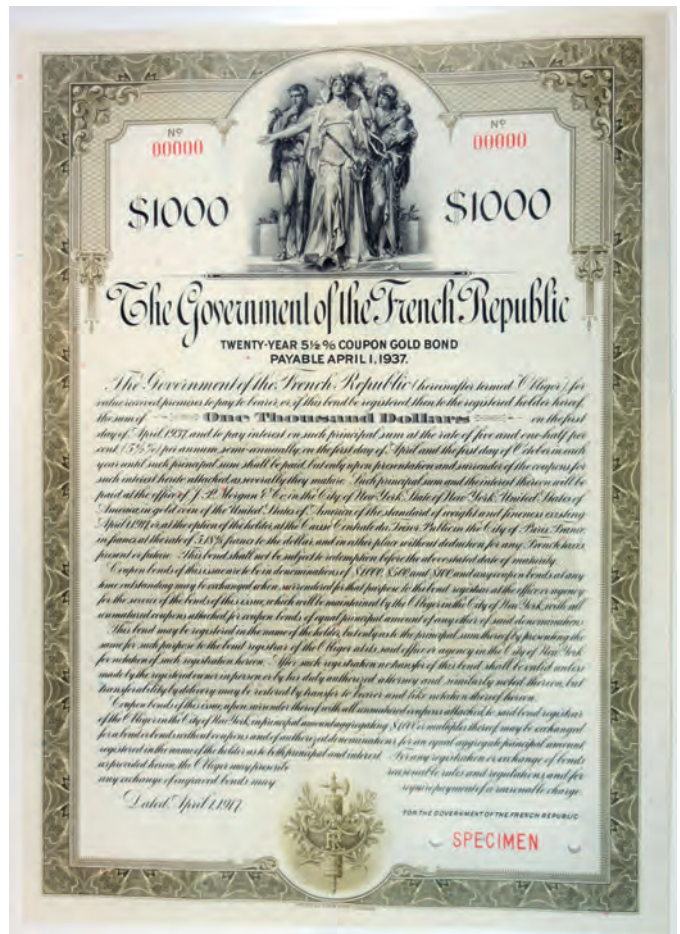 Nº
00000
Nº
00000
$1000
$1000
The Government of the French Republic
TWENTY-YEAR 5½% COUPON GOLD BOND
PAYABLE APRIL 1, 1937.
The Government of the French Republic (hereinafter termed "Obligor"), for
value received promises to pay to bearer, or, if this bond be registered, then to the registered holder hereof,
the sum of One Thousand Dollars on the first
day of April, 1937, and to pay interest on such principal sum at the rate of five and one-half per
cent (5½%) per annum, semi-annually, on the first day of April and the first day of October in each
year until such principal sum shall be paid, but only upon presentation and surrender of the coupons for
such interest hereto attached as severally they mature. Such principal sum and the interest thereon will be
paid at the office of J. P. Morgan & Co., in the City of New York, State of New York, United States of
America, in gold coin of the United States of America of the standard of weight and fineness existing
April 1, 1917, or, at the option of the holder, at the Caisse Centrale du Trésor Public in the City of Paris, France,
in francs at the rate of francs to the dollar, and in either place without deduction for any French taxes
present or future. This bond shall not be subject to redemption before the above stated date of maturity.
Coupon bonds of this issue are to be in denominations of $1000, $500 and $100 and any coupon bonds at any
time outstanding may be exchanged when surrendered for that purpose to the bond registrar at the office or agency
for the service of the bonds of this issue, which will be maintained by the Obligor in the City of New York, with all
unmatured coupons attached, for coupon bonds of equal principal amount of any other of said denominations.
This bond may be registered in the name of the holder, but only as to the principal sum thereof, by presenting the
same for such purpose to the bond registrar of the Obligor at its said office or agency in the City of New York
for notation of such registration hereon. After such registration no transfer of this bond shall be valid unless
made by the registered owner in person or by his duly authorized attorney and similarly noted thereon, but
transferability by delivery may be restored by transfer to bearer and like notation thereof hereon.
Coupon bonds of this issue, upon surrender thereof with all unmatured coupons attached, to said bond registrar
of the Obligor in the City of New York, in principal amount aggregating $1000 or multiples thereof may be exchanged
for a bond or bonds without coupons and of authorized denominations, for an equal aggregate principal amount
registered in the name of the holder as to both principal and interest. For any registration or exchange of bonds
as provided herein, the Obligor may prescribe reasonable rules and regulations, and for
any exchange of engraved bonds may require payment of a reasonable charge.
Dated, April 1, 1917.
FOR THE GOVERNMENT OF THE FRENCH REPUBLIC
RF
SPECIMEN